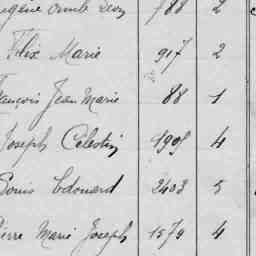 Emile Léon 788 2
Félix Marie 917 2
François Jean Marie 88 1
Joseph Célestin 1905 4
Louis Edouard 2403 5
Pierre Marie Joseph 1579 4